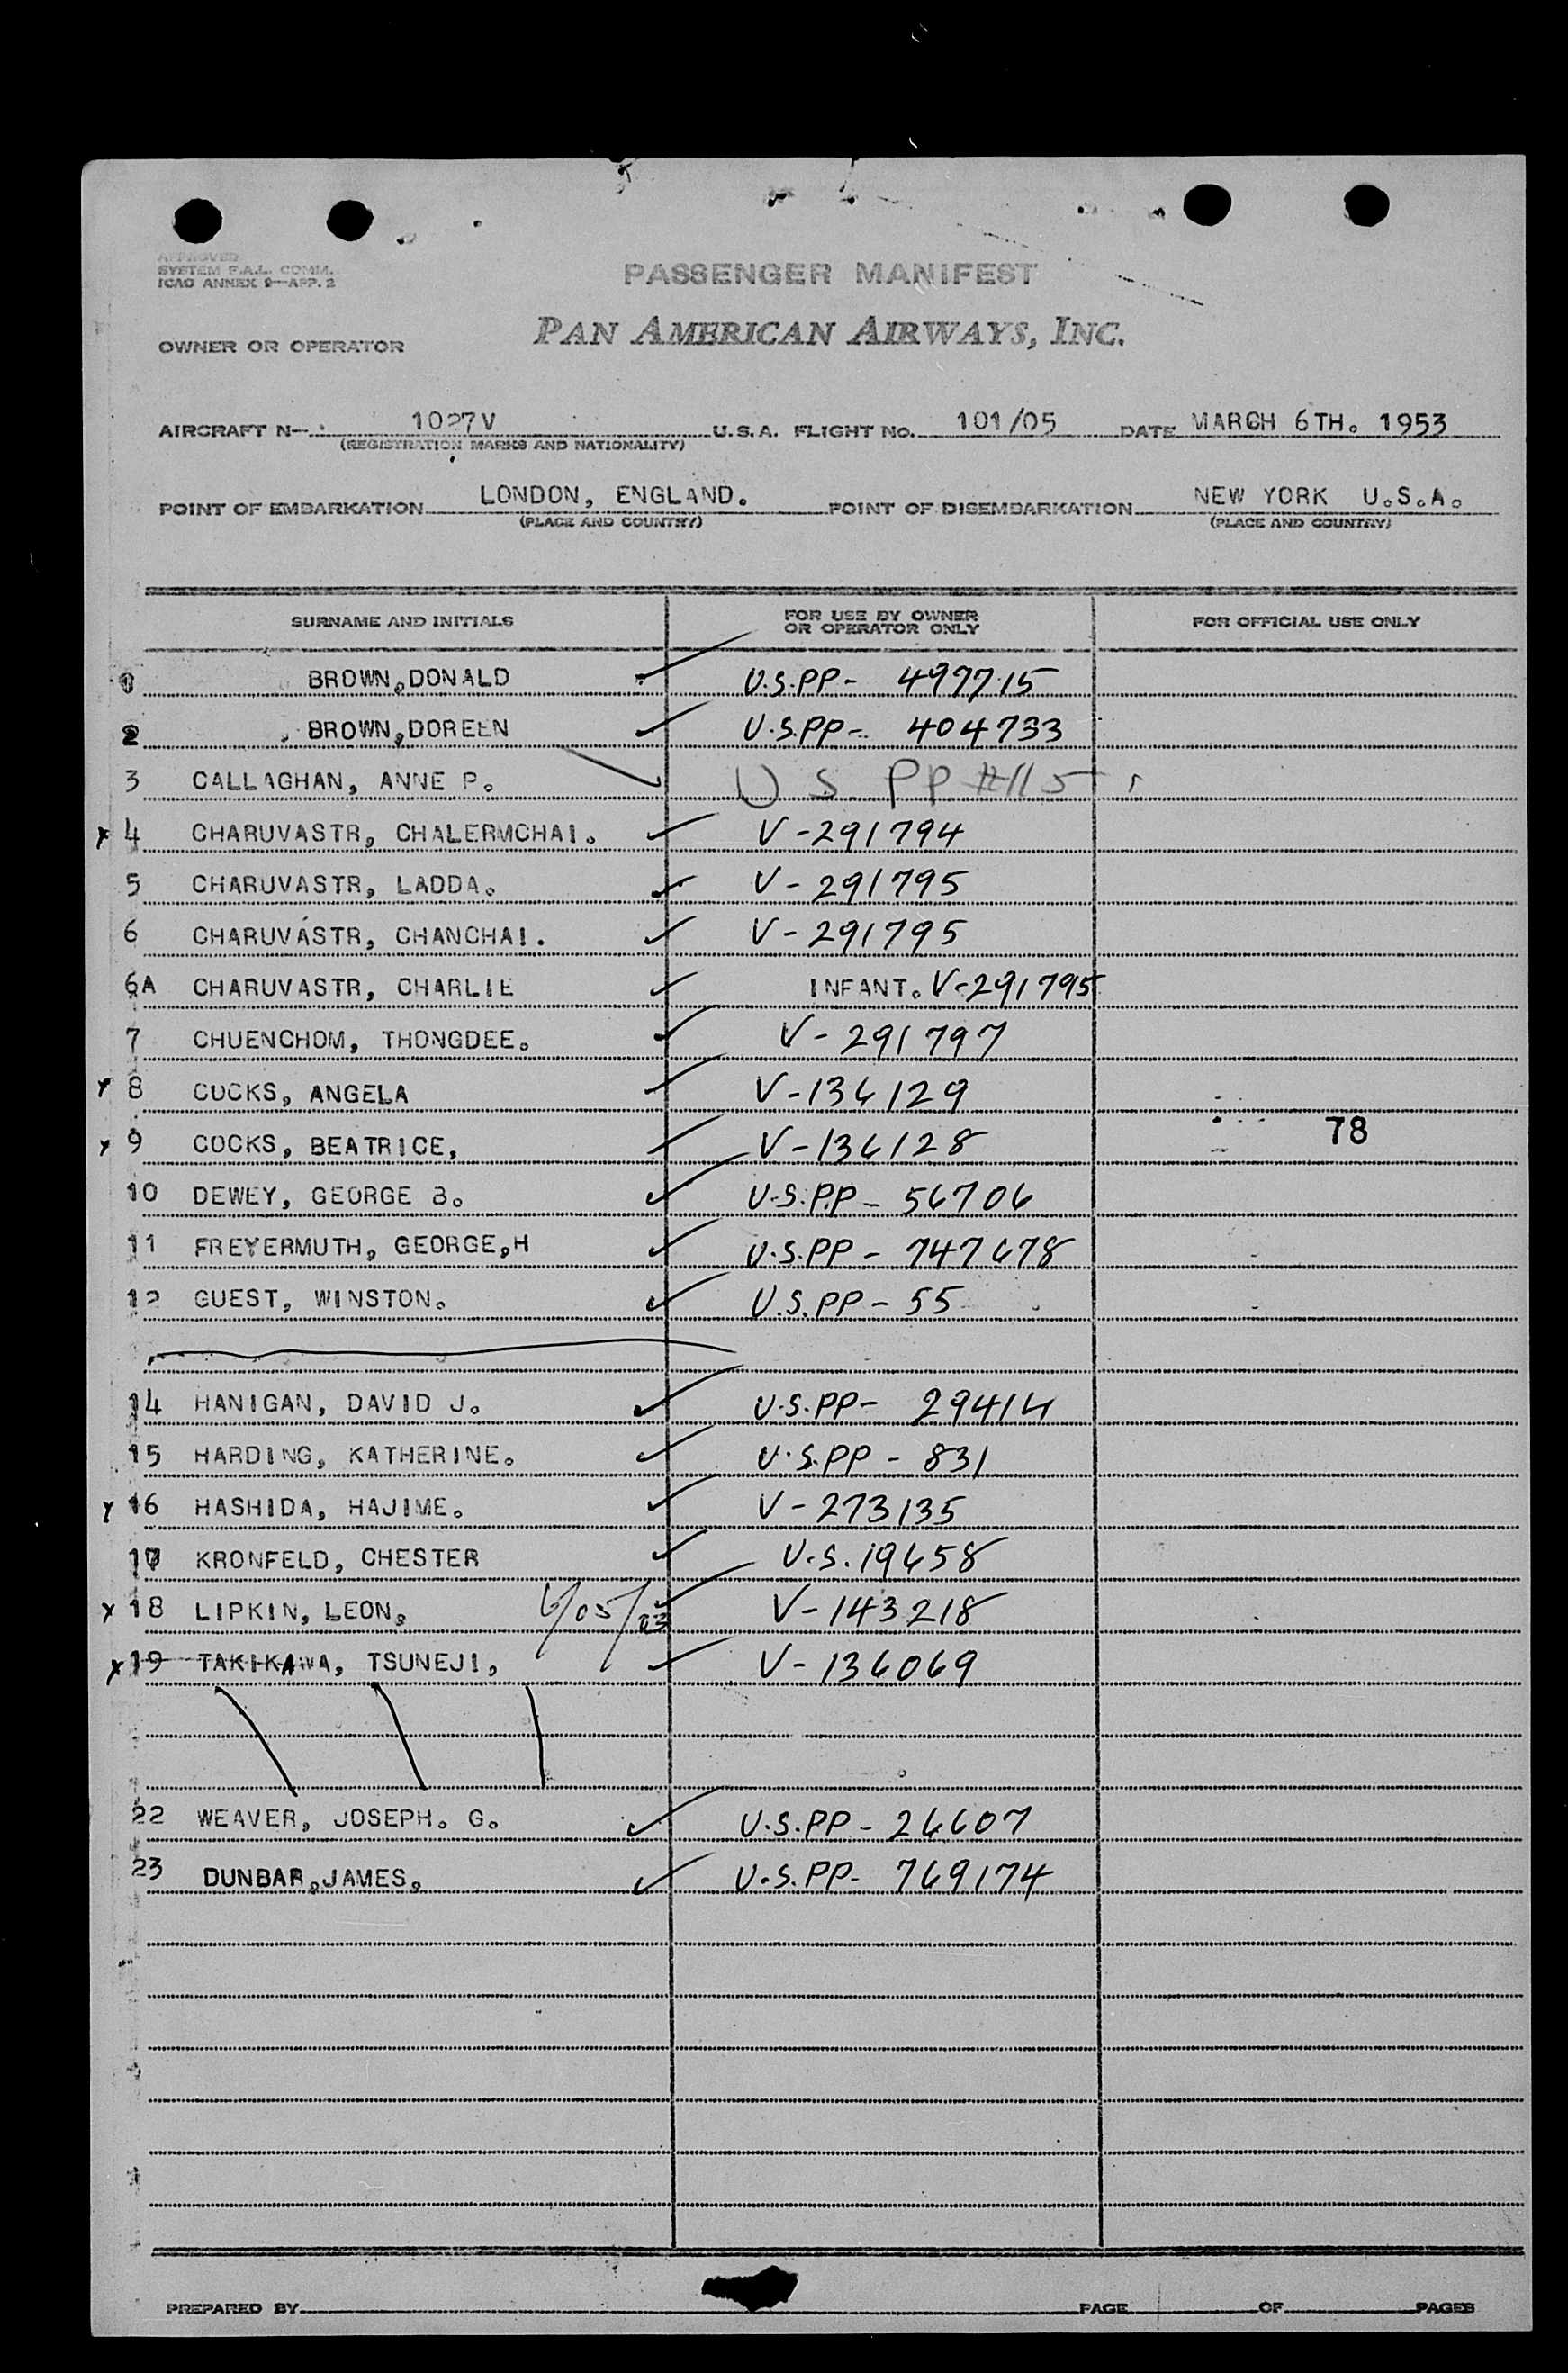 APPROVED
SYSTEM F.A.L. COMM.
ICAO ANNEX 9—APP. 2
PASSENGER MANIFEST
OWNER OR OPERATOR PAN AMERICAN AIRWAYS, INC.
AIRCRAFT N- 1027V U.S.A. FLIGHT NO. 101/05 DATE MARCH 6TH. 1953
(REGISTRATION MARKS AND NATIONALITY)
POINT OF EMBARKATION LONDON, ENGLAND. POINT OF DISEMBARKATION NEW YORK U.S.A.
(PLACE AND COUNTRY) (PLACE AND COUNTRY)
SURNAME AND INITIALS FOR USE BY OWNER OR OPERATOR ONLY FOR OFFICIAL USE ONLY
BROWN,DONALD U.S.PP- 497715
2 BROWN,DOREEN U.S.PP- 404733
3 CALLAGHAN, ANNE P. U S PP #115
x 4 CHARUVASTR, CHALERMCHAI. V-291794
5 CHARUVASTR, LADDA. V-291795
6 CHARUVASTR, CHANCHAI. V-291795
6A CHARUVASTR, CHARLIE INFANT. V-291795
7 CHUENCHOM, THONGDEE. V-291797
x 8 COCKS, ANGELA V-136129
x 9 COCKS, BEATRICE, V-136128
78
10 DEWEY, GEORGE B. U.S.PP- 56706
11 FREYERMUTH, GEORGE,H U.S.PP- 747678
12 GUEST, WINSTON. U.S.PP-55
14 HANIGAN, DAVID J. U.S.PP- 29414
15 HARDING, KATHERINE. U.S.PP - 831
x 16 HASHIDA, HAJIME. V-273135
17 KRONFELD, CHESTER U.S.19658
x 18 LIPKIN, LEON, V-143218
x 19 TAKIKAWA, TSUNEJI, V-136069
22 WEAVER, JOSEPH. G. U.S.PP- 26607
23 DUNBAR,JAMES. U.S.PP- 769174
PREPARED BY PAGE OF PAGES